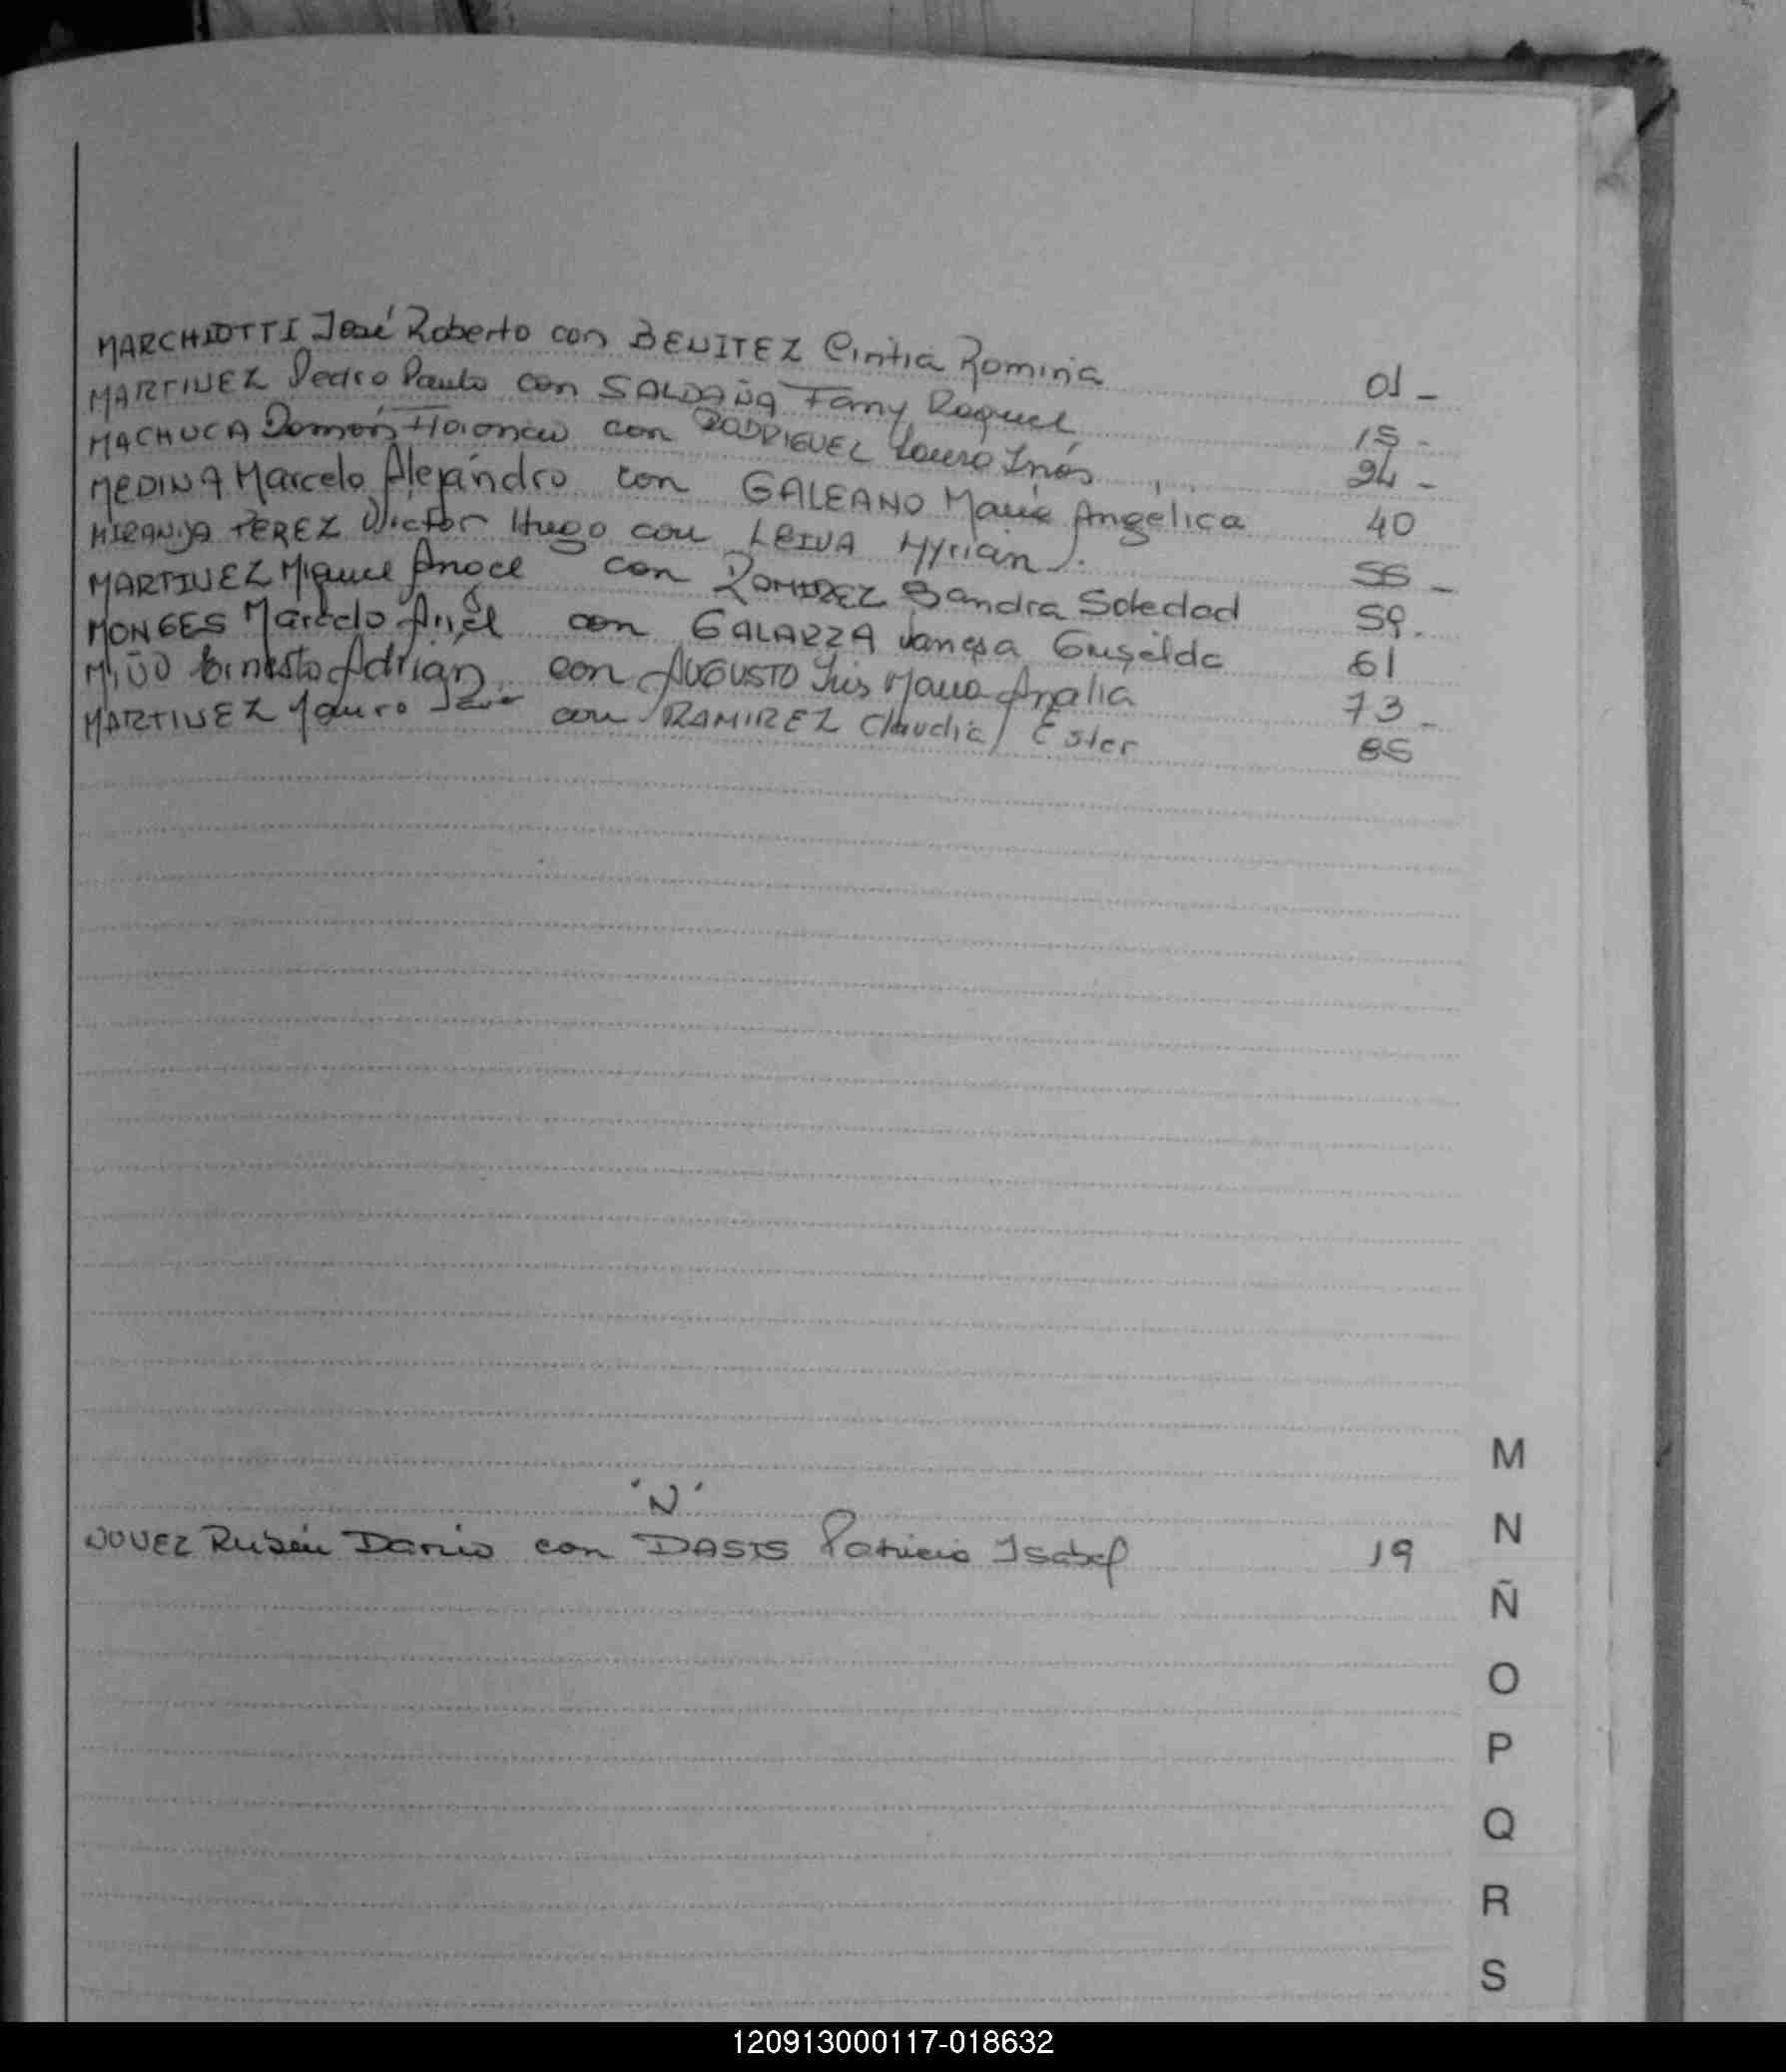 MARCHIOTTI José Roberto con BENITEZ Cintia Romina 01 -
MARTINEZ Pedro Paulo con SALDAÑA Fany Raquel 15 -
MACHUCA Ramón con RODRIGUEZ Laura Inés 24 -
MEDINA Marcelo Alejandro con GALEANO María Angélica 40
MIRANDA PEREZ Victor Hugo con LEIVA Myrian J. 55 -
MARTINEZ Miguel Angel con RAMIREZ Sandra Soledad 59.
MONGES Marcelo Ariel con GALARZA Vanesa Griselda 61
MIÑO Ernesto Adrián con AUGUSTO Maria Analia 73 -
MARTINEZ Mauro con RAMIREZ Claudia Ester 85
M
"N"
NUÑEZ Rubén Dario con Patricia Isabel 19
N
Ñ
O
P
Q
R
S
120913000117-018632